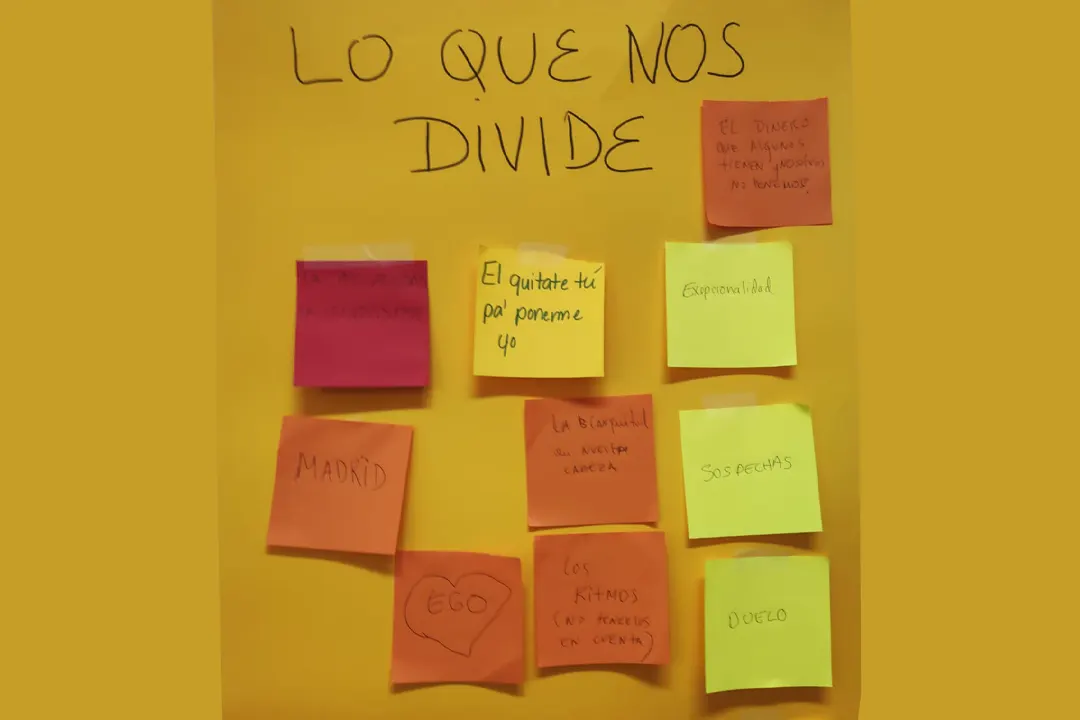 LO QUE NOS
DIVIDE
EL DINERO
QUE ALGUNOS
TIENEN y NOSOTROS
NO TENEMOS!
El quitate tú
pa' ponerme
yo
Exopersonalidad
MADRID
LA Blanquitud
en NUESTRA
CABEZA
SOSPECHAS
EGO
LOS
RITMOS
(NO TENERLOS
EN CUENTA)
DUELO